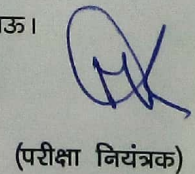 ऊ।
(परीक्षा नियंत्रक)